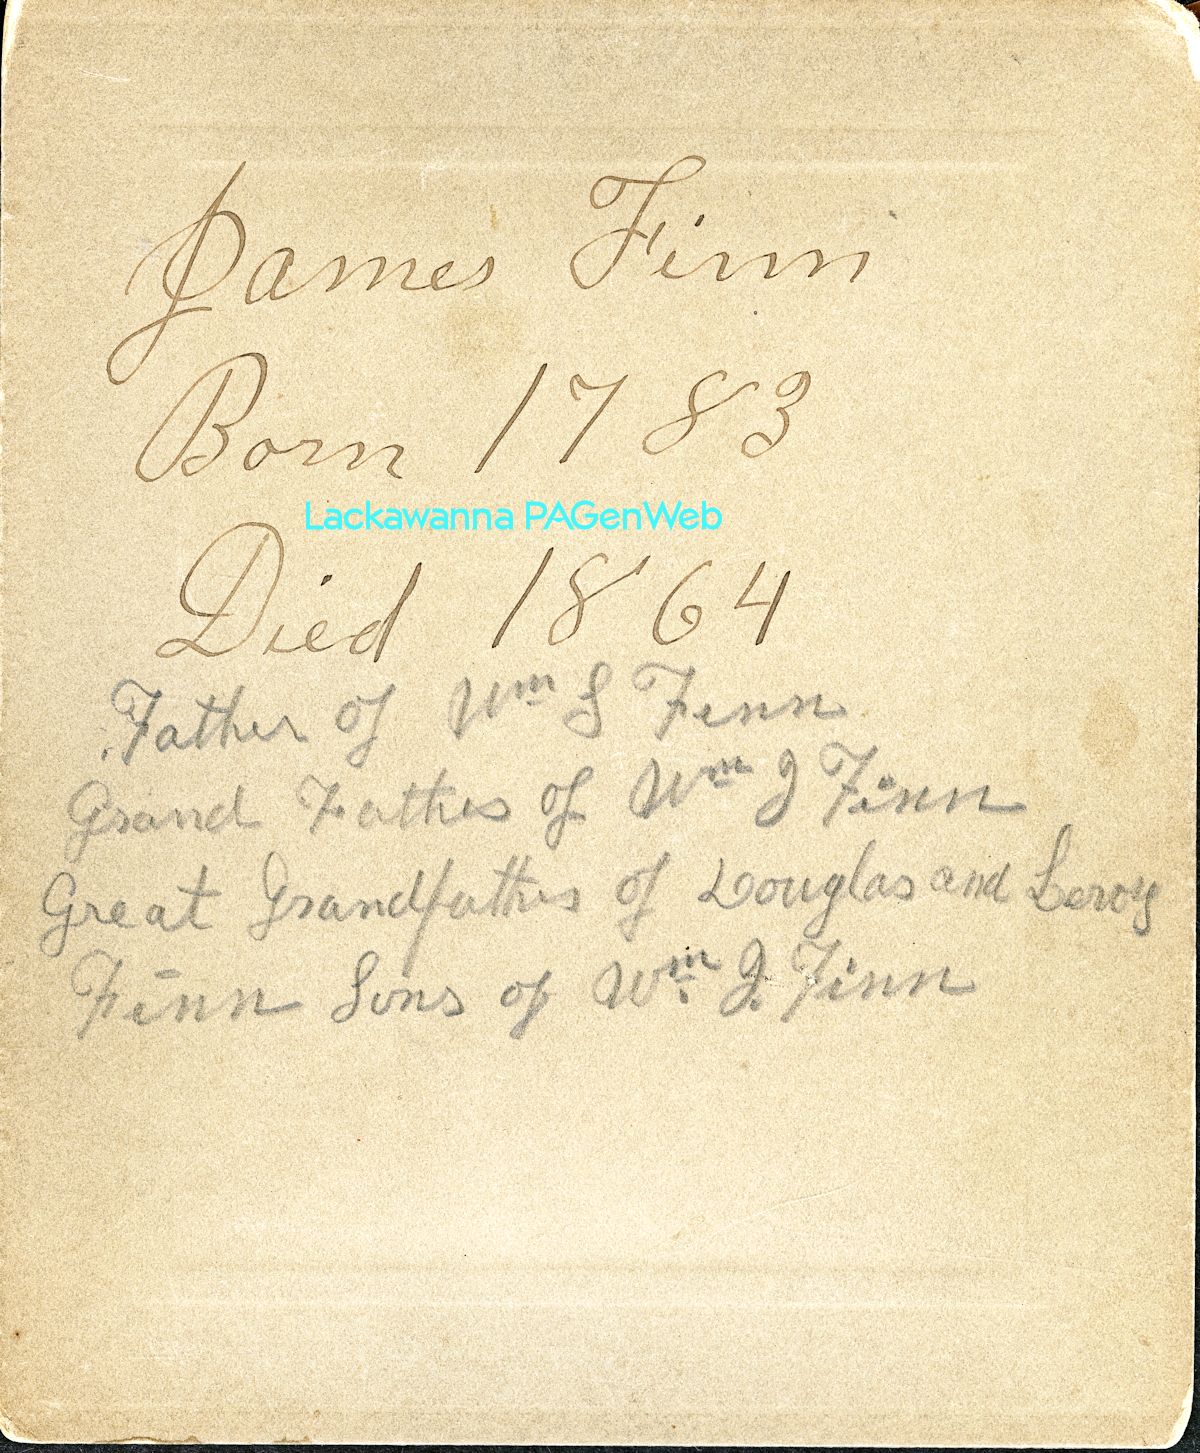 James Finn
Born 1783
Lackawanna PAGenWeb
Died 1864
Father of Wm S Finn
Grand Father of Wm J Finn
Great Grandfather of Douglas and Leroy
Finn Sons of Wm. J. Finn